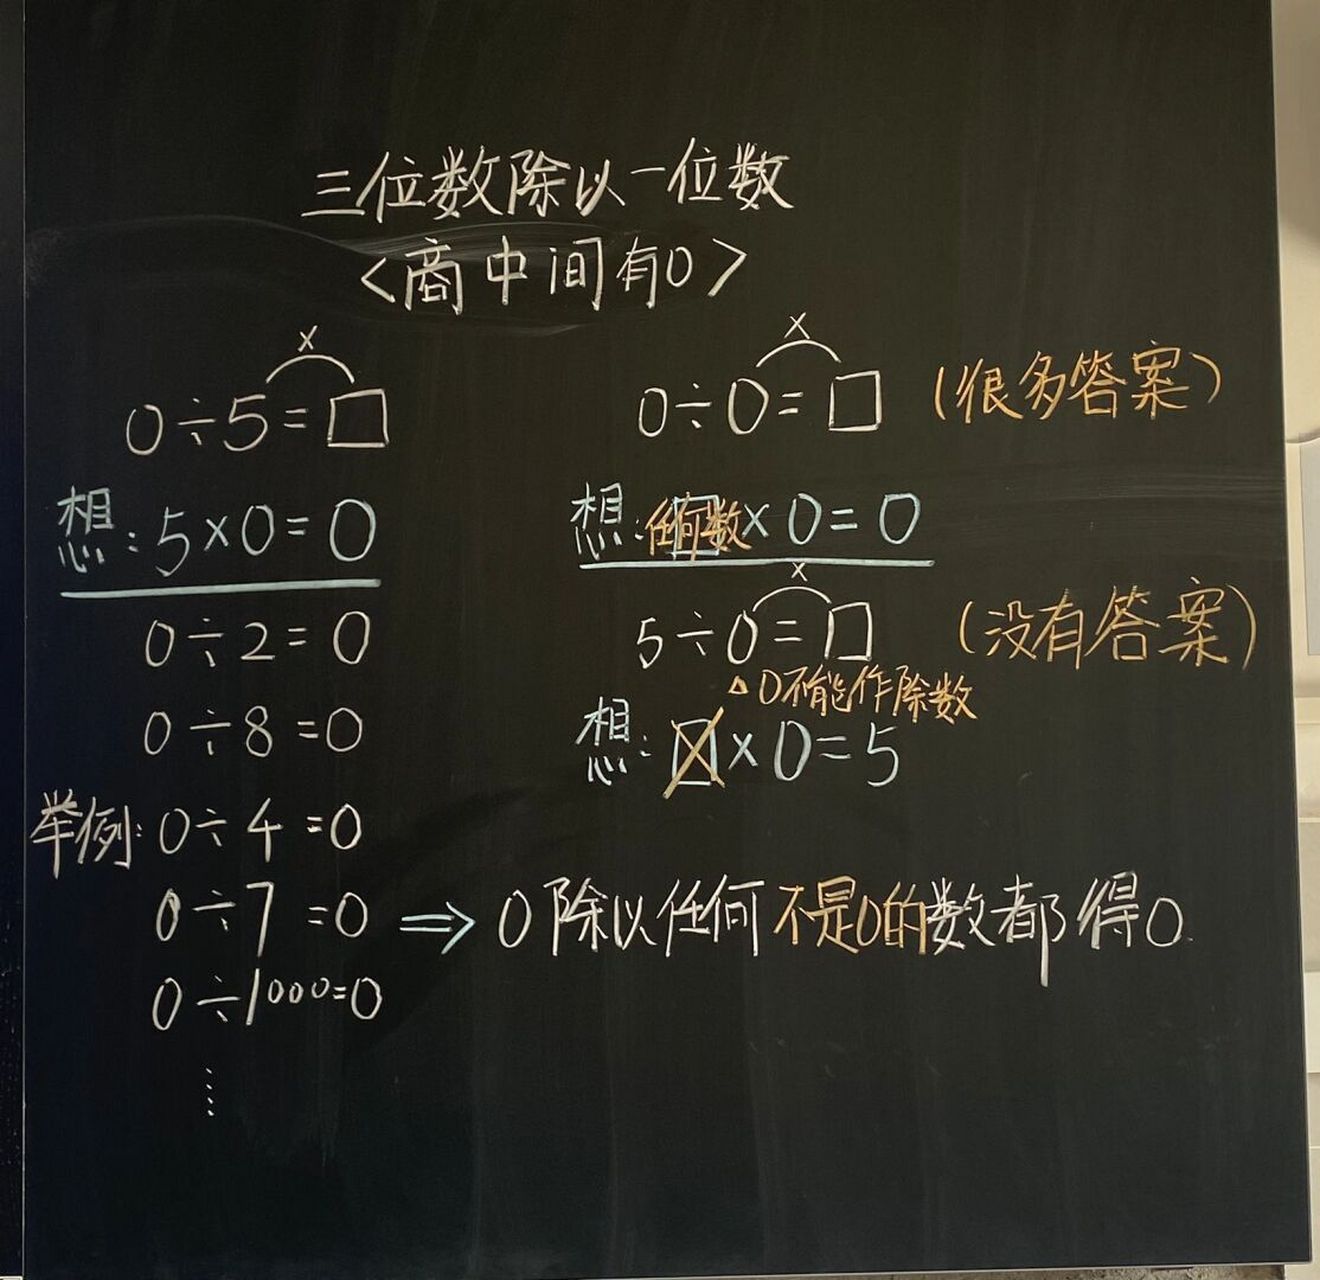 三位数除以一位数
<商中间有0>
×
0÷5=□
想:5×0=0
0÷2=0
0÷8=0
举例:0÷4=0
0÷7=0
0÷1000=0
……
×
0÷0=□ (很多答案)
想:任何数×0=0
×
5÷0=□ (没有答案)
△0不能作除数
想:□×0=5
⇒0除以任何不是0的数都得0